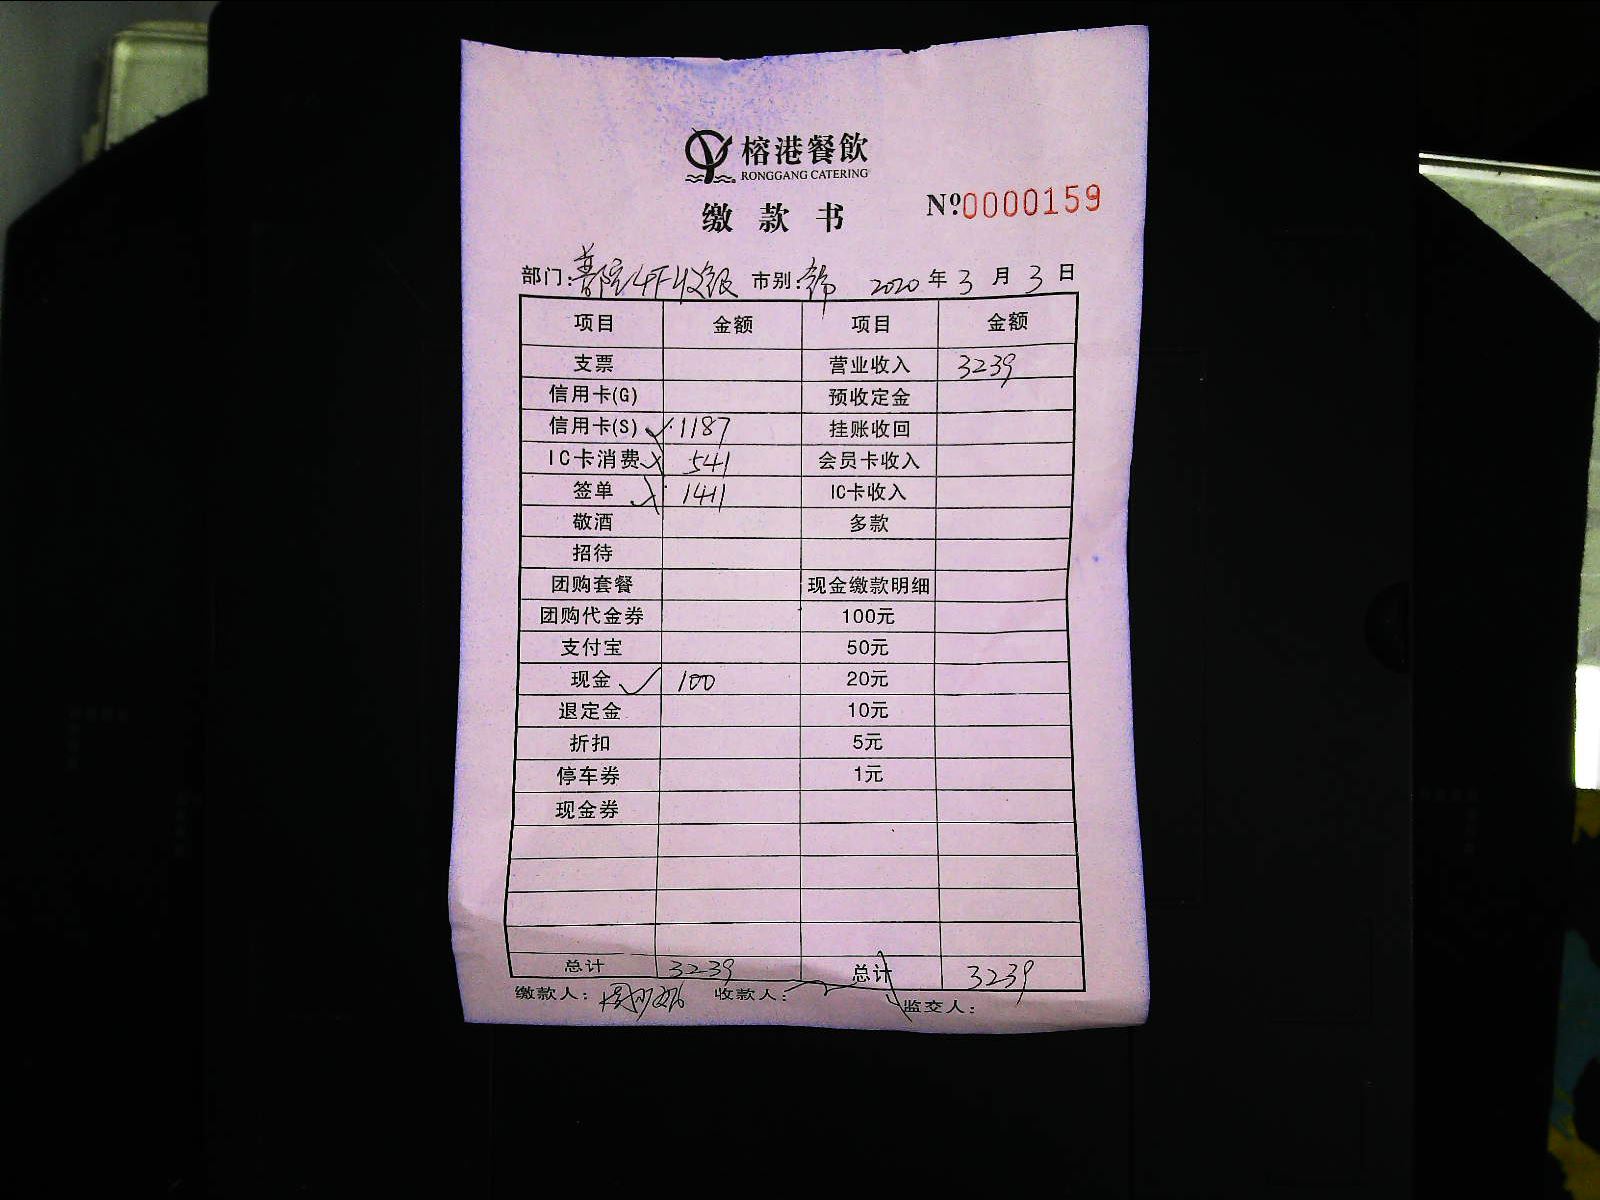 榕港餐飲
RONGGANG CATERING
缴款书
Nº.0000159
部门: 4F收银 市别: 2020年3月3日
项目 金额 项目 金额
支票 营业收入 3239
信用卡(G) 预收定金
信用卡(S) 1187 挂账收回
IC卡消费 541 会员卡收入
签单 1411 IC卡收入
敬酒 多款
招待
团购套餐 现金缴款明细
团购代金券 100元
支付宝 50元
现金 100 20元
退定金 10元
折扣 5元
停车券 1元
现金券
总计 3239 总计 3239
缴款人: 收款人: 监交人: